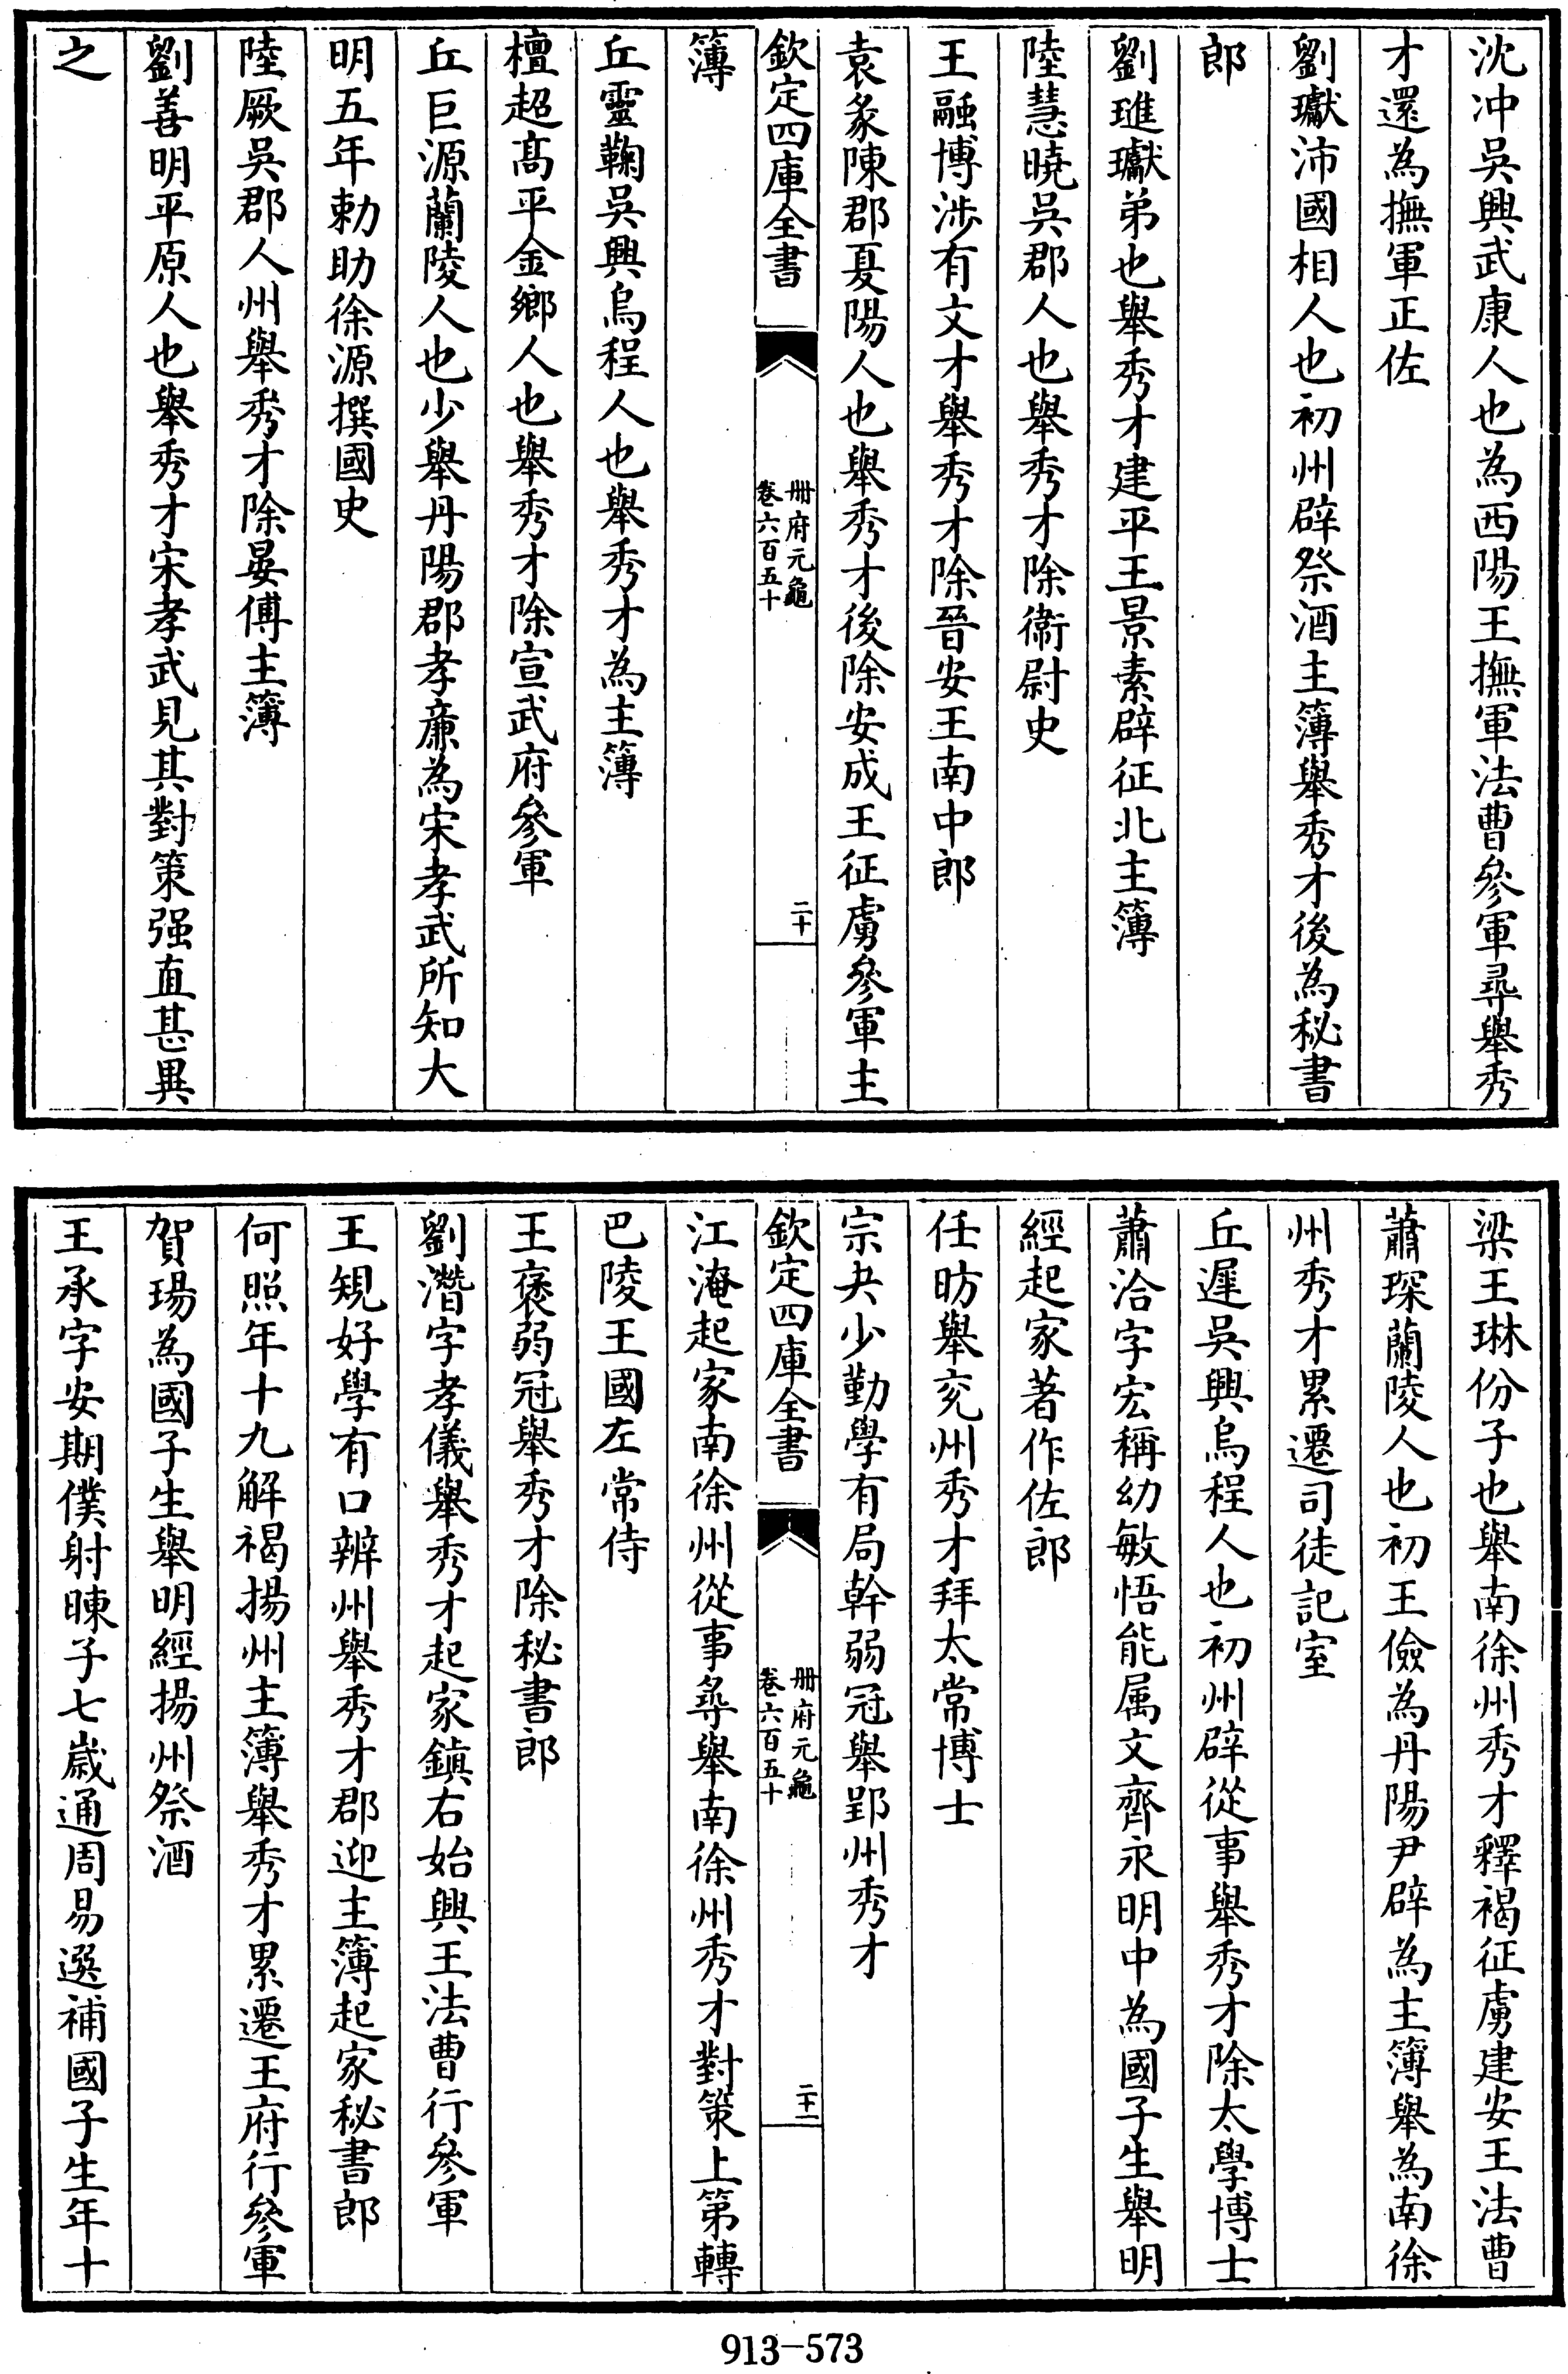 沈冲吳興武康人也為西陽王撫軍法曹參軍尋舉秀
才還為撫軍正佐
劉瓛沛國相人也初州辟祭酒主簿舉秀才後為秘書
郎
劉璡瓛弟也舉秀才建平王景素辟征北主簿
陸慧曉吳郡人也舉秀才除衛尉史
王融博涉有文才舉秀才除晉安王南中郎
袁彖陳郡夏陽人也舉秀才後除安成王征虜參軍主
欽定四庫全書
冊府元龜
卷六百五十
二十
簿
丘靈鞠吳興烏程人也舉秀才為主簿
檀超高平金鄉人也舉秀才除宣武府參軍
丘巨源蘭陵人也少舉丹陽郡孝廉為宋孝武所知大
明五年勅助徐源撰國史
陸厥吳郡人州舉秀才除晏傅主簿
劉善明平原人也舉秀才宋孝武見其對策强直甚異
之
梁王琳份子也舉南徐州秀才釋褐征虜建安王法曹
蕭琛蘭陵人也初王儉為丹陽尹辟為主簿舉為南徐
州秀才累遷司徒記室
丘遲吳興烏程人也初州辟從事舉秀才除太學博士
蕭洽字宏稱幼敏悟能属文齊永明中為國子生舉明
經起家著作佐郎
任昉舉兖州秀才拜太常博士
宗夬少勤學有局幹弱冠舉郢州秀才
欽定四庫全書
冊府元龜
卷六百五十
二十一
江淹起家南徐州從事尋舉南徐州秀才對策上第轉
巴陵王國左常侍
王褒弱冠舉秀才除秘書郎
劉潛字孝儀舉秀才起家鎮右始興王法曹行參軍
王規好學有口辨州舉秀才郡迎主簿起家秘書郎
何照年十九解褐揚州主簿舉秀才累遷王府行參軍
賀瑒為國子生舉明經揚州祭酒
王承字安期僕射暕子七歲通周易選補國子生年十
913-573